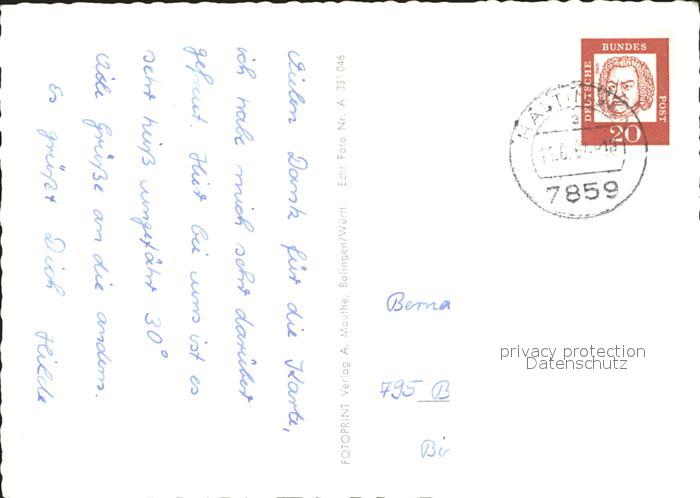 Vielen Dank für die Karte,
ich habe mich sehr darüber
gefreut. Hier bei uns ist es
sehr heiß ungefähr 30°
Viele Grüße an die andern.
Es grüßt Dich Hilde
FOTOPRINT Verlag A. Mauthe, Balingen/Württ. Echt Foto Nr. A 331046
DEUTSCHE BUNDES POST
20
7859
Berna
795 B
Bi
privacy protection
Datenschutz